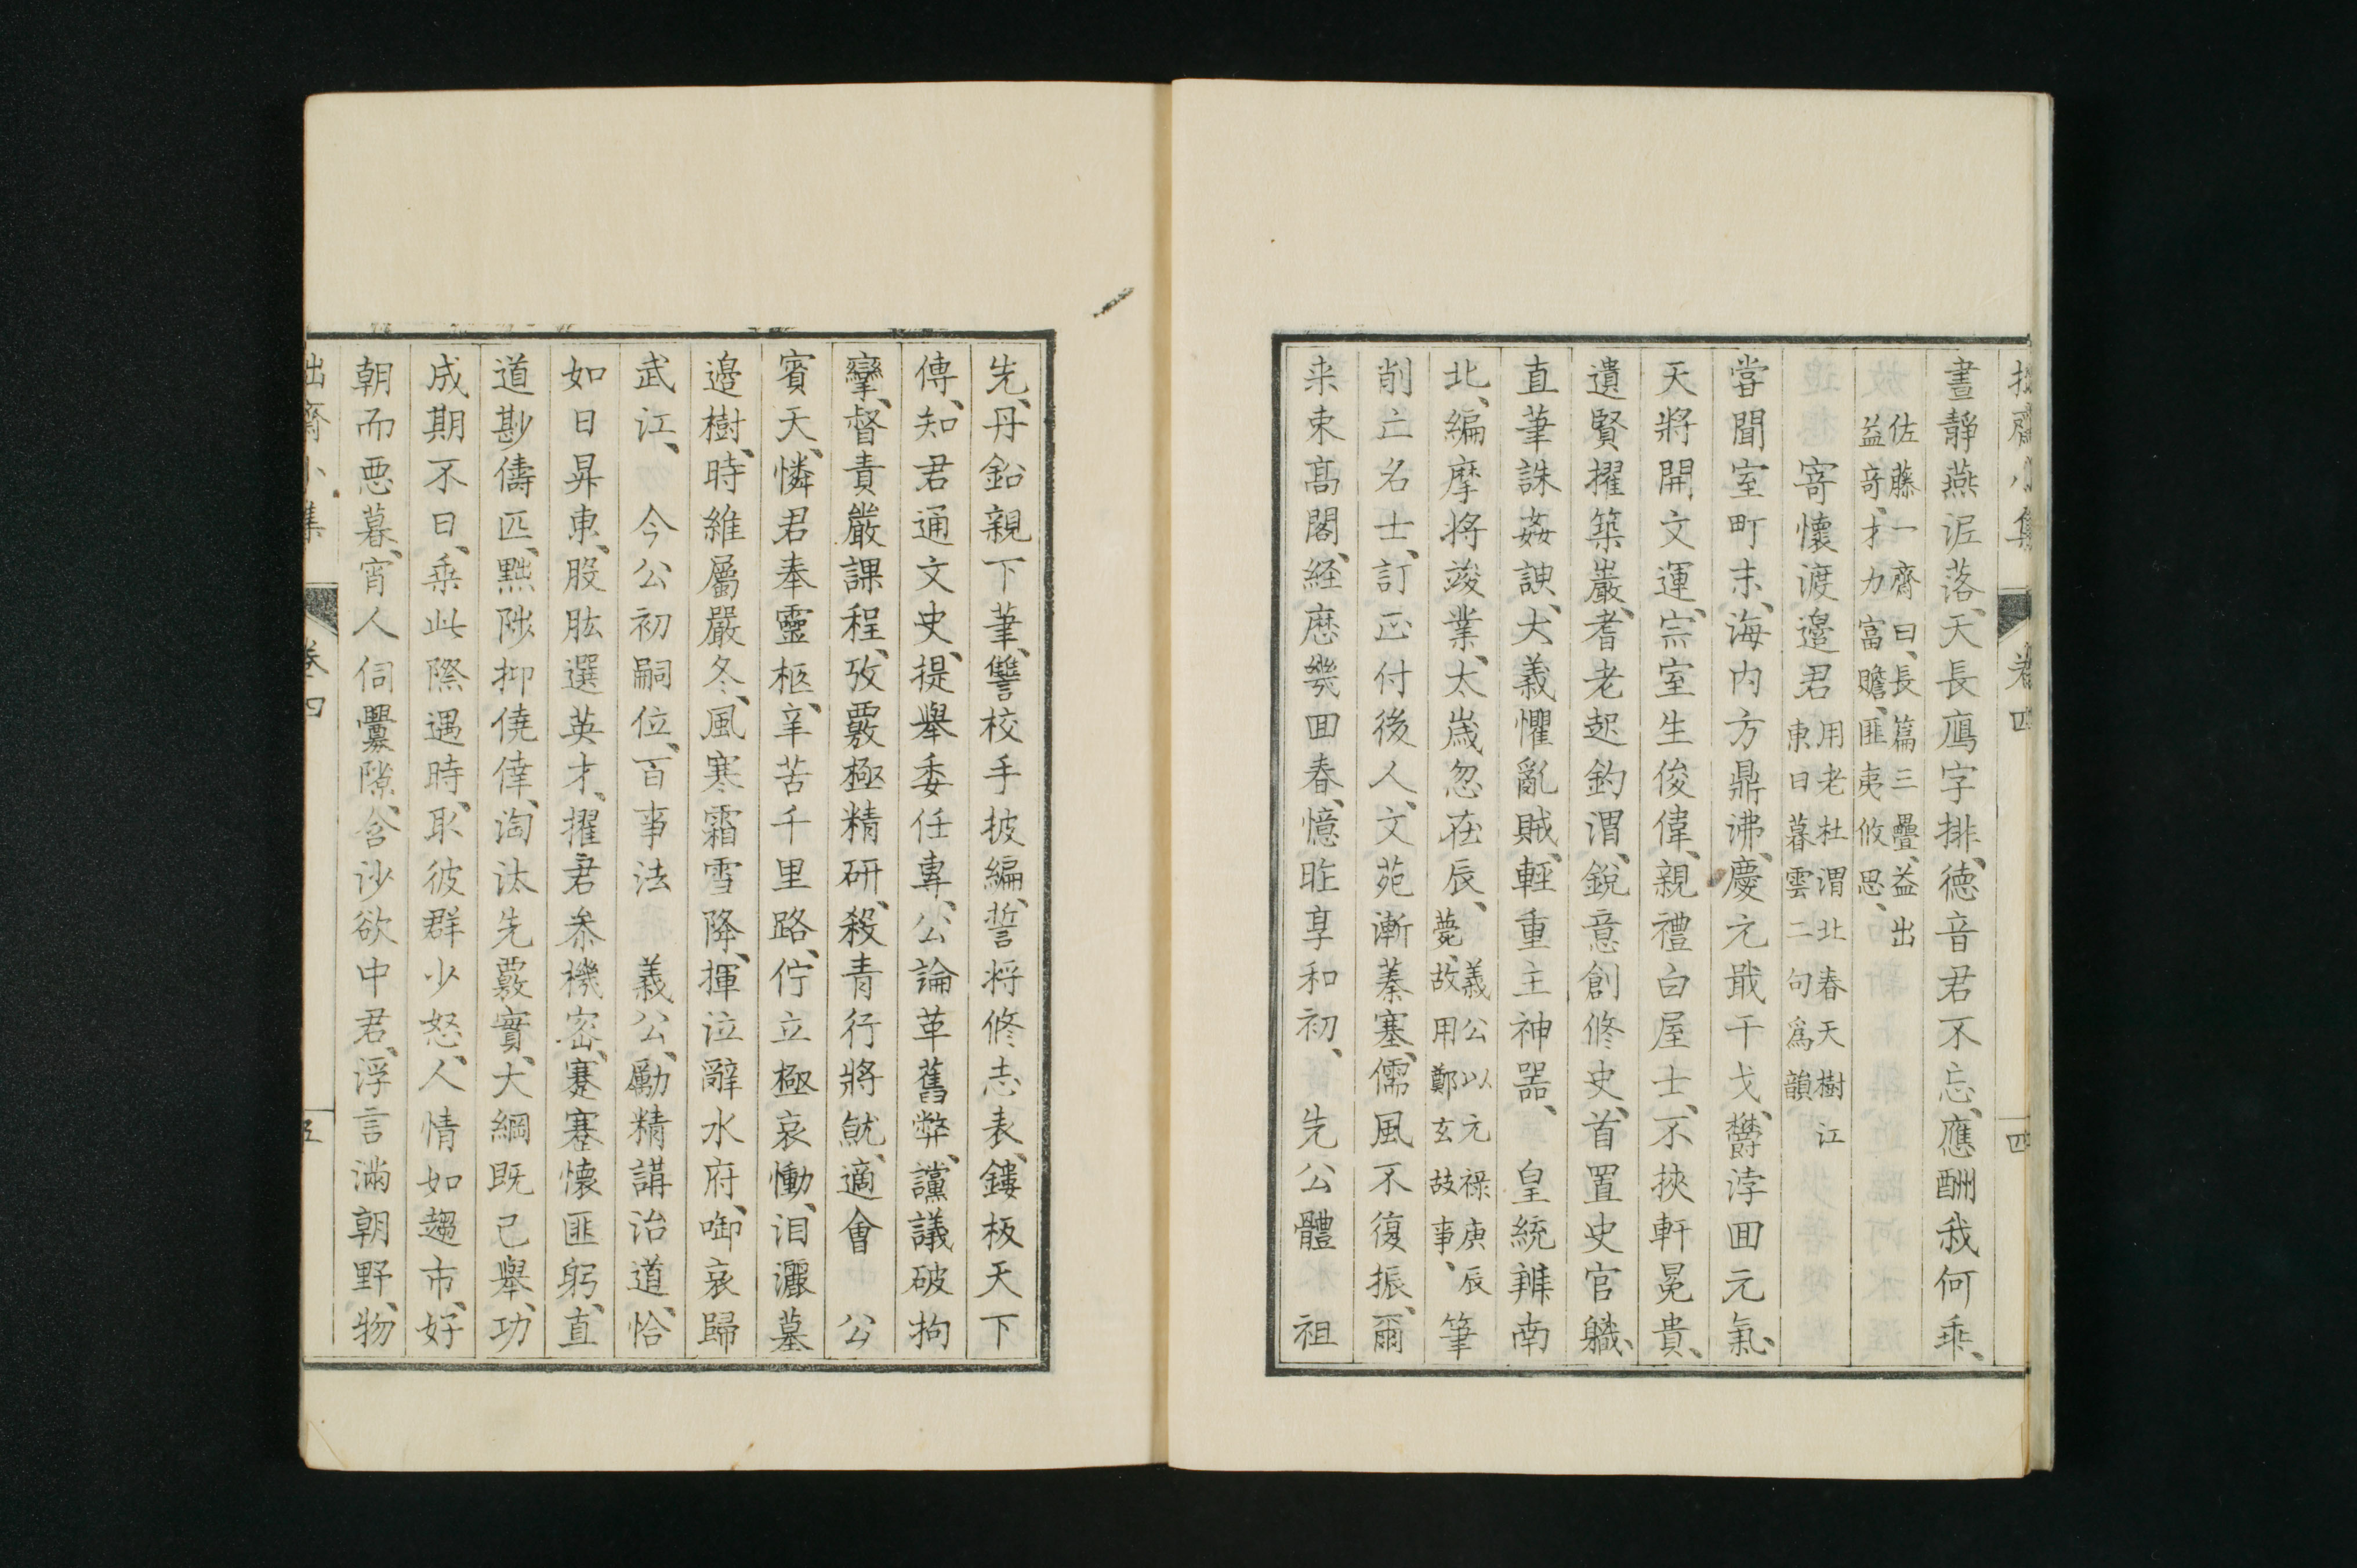 拙齋小集 卷四 四
晝静燕泥落、天長鴈字排、德音君不忘、應酬我何乖、
佐藤一齊曰、長篇三疊、益出
益竒、才力富贍、匪夷攸思、
寄懷渡邉君
用老杜渭北春天樹江
東日暮雲二句爲韻
嘗聞室町末、海内方鼎沸、慶元戢干戈、欝浡回元氣、
天將開文運、宗室生俊偉、親禮白屋士、不挾軒冕貴、
遺賢擢築巖、耆老起釣渭、銳意創修史、首置史官軄、
直筆誅姦諛、大義懼亂賊、輕重主神器、 皇統辨南
北、編摩将竣業、太歳忽在辰、
義公以元禄庚辰
薨、故用鄭玄故事、
筆
削亡名士、訂正付後人、文苑漸蓁塞、儒風不復振、爾
来束髙閣、経歴幾回春、憶昨享和初、 先公體 祖
先、丹鉛親下筆、讐校手披編、誓将修志表、鏤板天下
傳、知君通文史、提舉委任專、公論革舊弊、讜議破拘
攣、督責嚴課程、攷覈極精研、殺青行將就、適會 公
賓天、憐君奉靈柩、辛苦千里路、佇立極哀慟、泪灑墓
邉樹、時維屬嚴冬、風寒霜雪降、揮泣辭水府、啣哀歸
武江、 今公初嗣位、百事法 義公、勵精講治道、恰
如日昇東、股肱選英才、擢君叅機密、蹇蹇懷匪躬、直
道尠儔匹、黜陟抑僥倖、淘汰先覈實、大綱既已舉、功
成期不日、乗此際遇時、取彼群少怒、人情如趨市、好
朝而惡暮、宵人伺釁隙、含沙欲中君、浮言滿朝野、物
拙齋小集 卷四 五